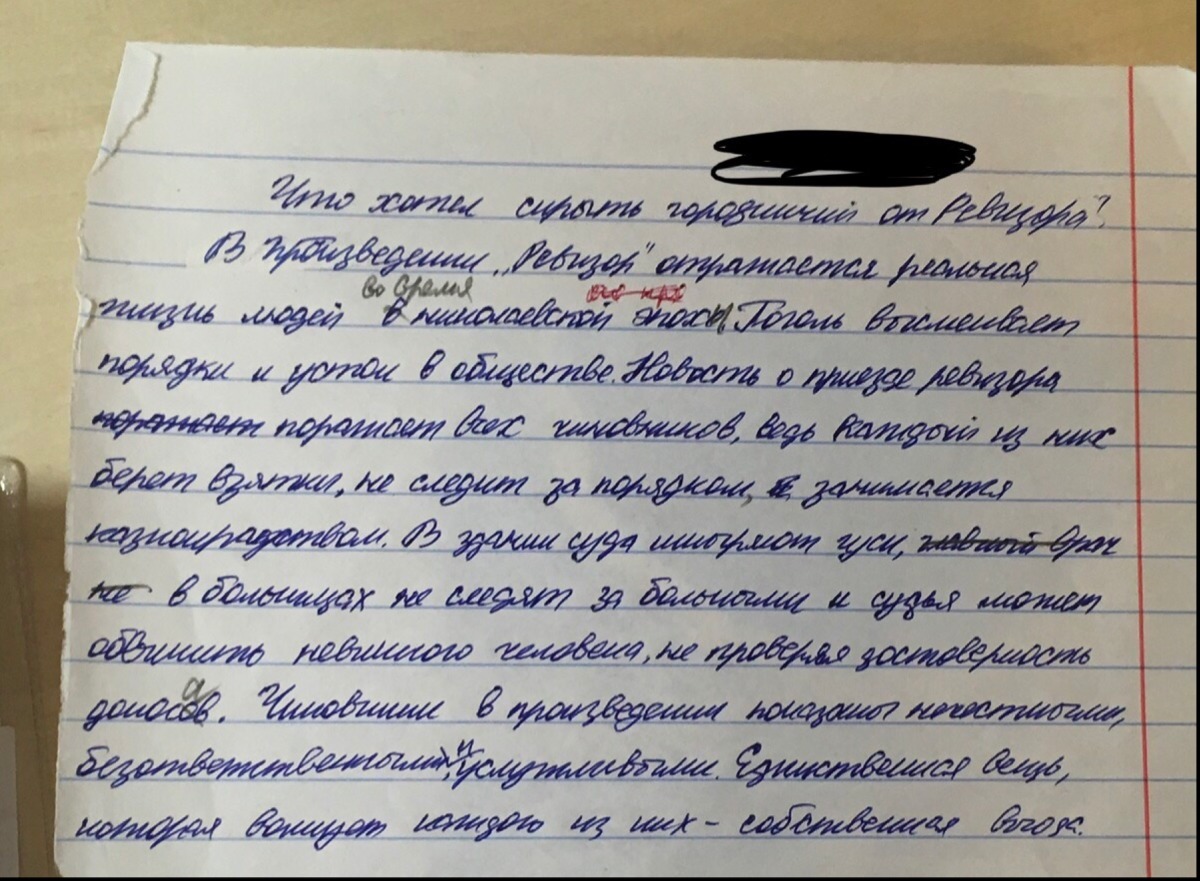 Что хотел скрыть городничий от Ревизора?
В произведении „Ревизор" отражается реальная
во время
жизнь людей в николаевской эпохи. Гоголь высмеивает
порядки и устои в обществе. Новость о приезде ревизора
поражает поражает всех чиновников, ведь каждый из них
берет взятки, не следит за порядком, занимается
казнокрадством. В здании суда шныряют гуси, главный врач
не в больницах не следят за больными и судья может
обвинить невинного человека, не проверяя достоверность
доносов. Чиновники в произведении показаны нечестными,
безответственными и услужливыми. Единственная вещь,
которая волнует каждого из них – собственная выгода.